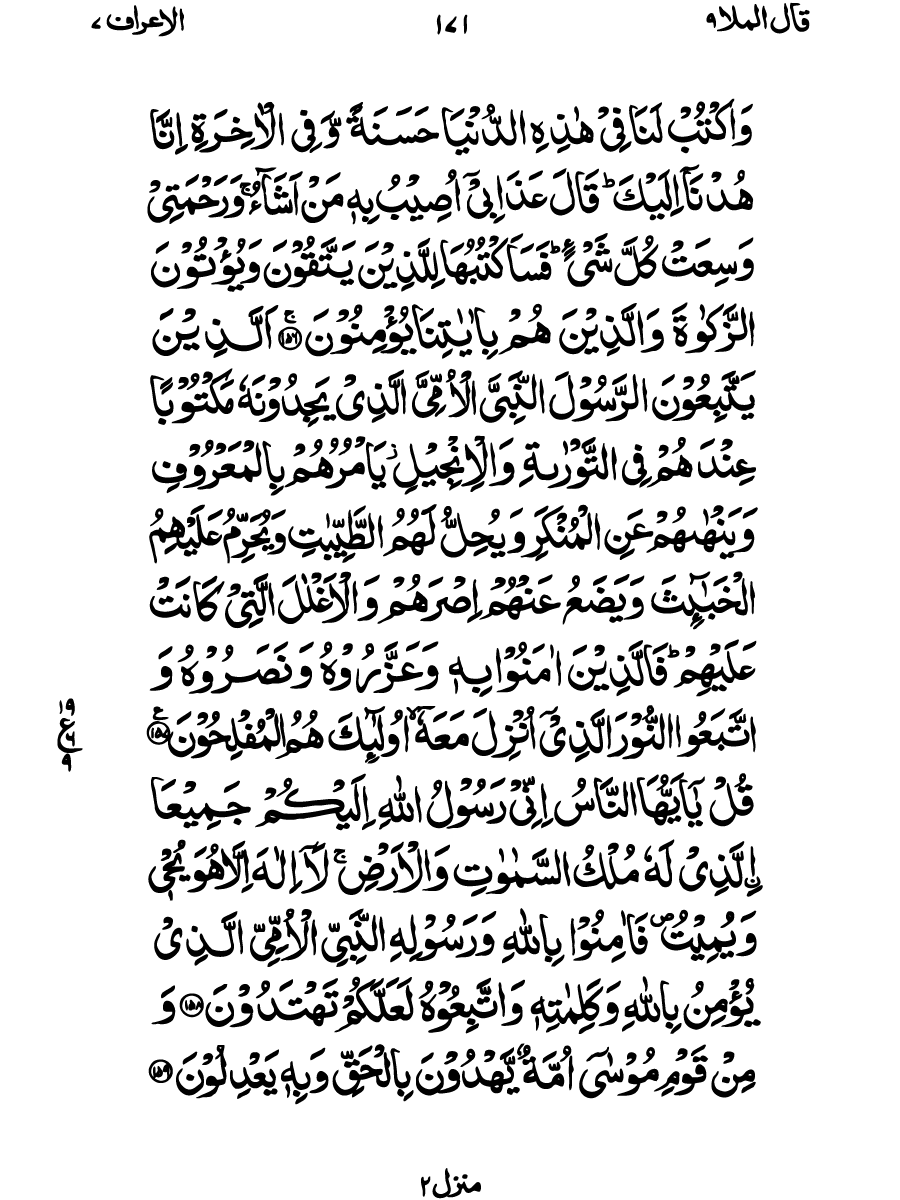 قال الملا ۹
۱۷۱
الاعراف ۷
وَاكْتُبْ لَنَا فِیْ هٰذِهِ الدُّنْیَا حَسَنَةً وَّ فِی الْاٰخِرَةِ اِنَّا
هُدْنَاۤ اِلَیْكَ ؕ قَالَ عَذَابِیْۤ اُصِیْبُ بِهٖ مَنْ اَشَآءُ ۚ وَرَحْمَتِیْ
وَسِعَتْ كُلَّ شَیْءٍ ؕ فَسَاَكْتُبُهَا لِلَّذِیْنَ یَتَّقُوْنَ وَیُؤْتُوْنَ
الزَّكٰوةَ وَالَّذِیْنَ هُمْ بِاٰیٰتِنَا یُؤْمِنُوْنَ ۚ ﴿۱۵۶﴾ اَلَّذِیْنَ
یَتَّبِعُوْنَ الرَّسُوْلَ النَّبِیَّ الْاُمِّیَّ الَّذِیْ یَجِدُوْنَهٗ مَكْتُوْبًا
عِنْدَهُمْ فِی التَّوْرٰىةِ وَالْاِنْجِیْلِ ؗ یَاْمُرُهُمْ بِالْمَعْرُوْفِ
وَیَنْهٰىهُمْ عَنِ الْمُنْكَرِ وَیُحِلُّ لَهُمُ الطَّیِّبٰتِ وَیُحَرِّمُ عَلَیْهِمُ
الْخَبٰٓىِٕثَ وَیَضَعُ عَنْهُمْ اِصْرَهُمْ وَالْاَغْلٰلَ الَّتِیْ كَانَتْ
عَلَیْهِمْ ؕ فَالَّذِیْنَ اٰمَنُوْا بِهٖ وَعَزَّرُوْهُ وَنَصَرُوْهُ وَ
اتَّبَعُوا النُّوْرَ الَّذِیْۤ اُنْزِلَ مَعَهٗۤ ۙ اُولٰٓىِٕكَ هُمُ الْمُفْلِحُوْنَ ﴿۱۵۷﴾ ع
۱۹
ع
۶
۹
قُلْ یٰۤاَیُّهَا النَّاسُ اِنِّیْ رَسُوْلُ اللّٰهِ اِلَیْكُمْ جَمِیْعَا
ِ۟الَّذِیْ لَهٗ مُلْكُ السَّمٰوٰتِ وَالْاَرْضِ ۚ لَاۤ اِلٰهَ اِلَّا هُوَ یُحْیٖ
وَیُمِیْتُ ۪ فَاٰمِنُوْا بِاللّٰهِ وَرَسُوْلِهِ النَّبِیِّ الْاُمِّیِّ الَّذِیْ
یُؤْمِنُ بِاللّٰهِ وَكَلِمٰتِهٖ وَاتَّبِعُوْهُ لَعَلَّكُمْ تَهْتَدُوْنَ ﴿۱۵۸﴾ وَ
مِنْ قَوْمِ مُوْسٰۤی اُمَّةٌ یَّهْدُوْنَ بِالْحَقِّ وَبِهٖ یَعْدِلُوْنَ ﴿۱۵۹﴾
منزل ۲